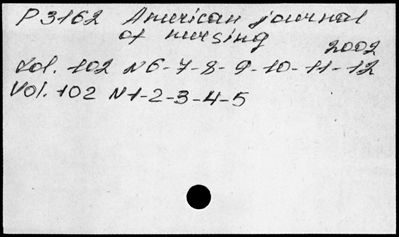 P3162 American journal
of nursing
2002
Vol. 102 N6-7-8-9-10-11-12
Vol. 102 N1-2-3-4-5